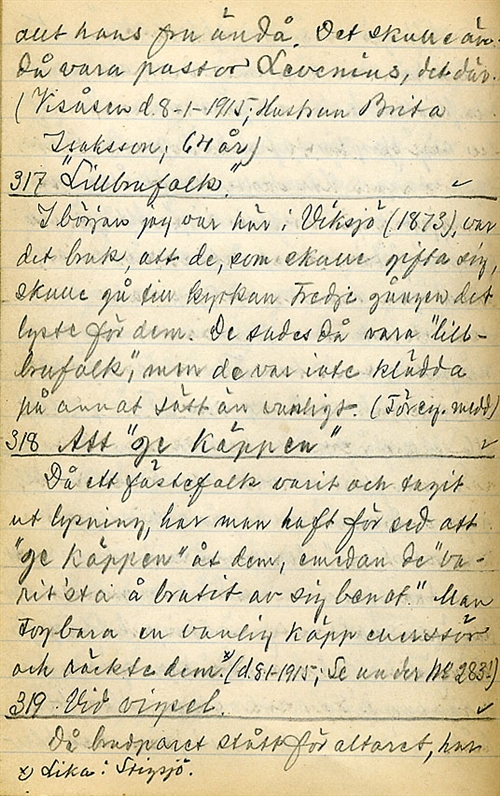 att hans fru ändå. Det skulle än-
då vara pastor Levenius, det där.
(Visåsen d. 8-1-1915; Hustrun Brita
Isaksson, 64 år)
317 "Lillbrufolk."
I början jag var här i Viksjö (1873), var
det bruk, att de, som skulle gifta sig,
skulle gå till kyrkan tredje gången det
lyste för dem. De sades då vara "lill-
brufolk", men de var inte klädda
på annat sätt än vanligt. (Föreg. medd)
318 Att "ge käppen"
Då ett fästefolk varit och tagit
ut lysning, har man haft för sed att
"ge käppen" åt dem, emedan de "va-
rit 'sta å brutit av sig benat." Man
tog bara en vanlig käpp eller stör
och räckte dem.x) (d. 8-1-1915; Se under No 283.)
319 Vid vigsel.
Då brudparet stått för altaret, har
x) Lika i Stigsjö.